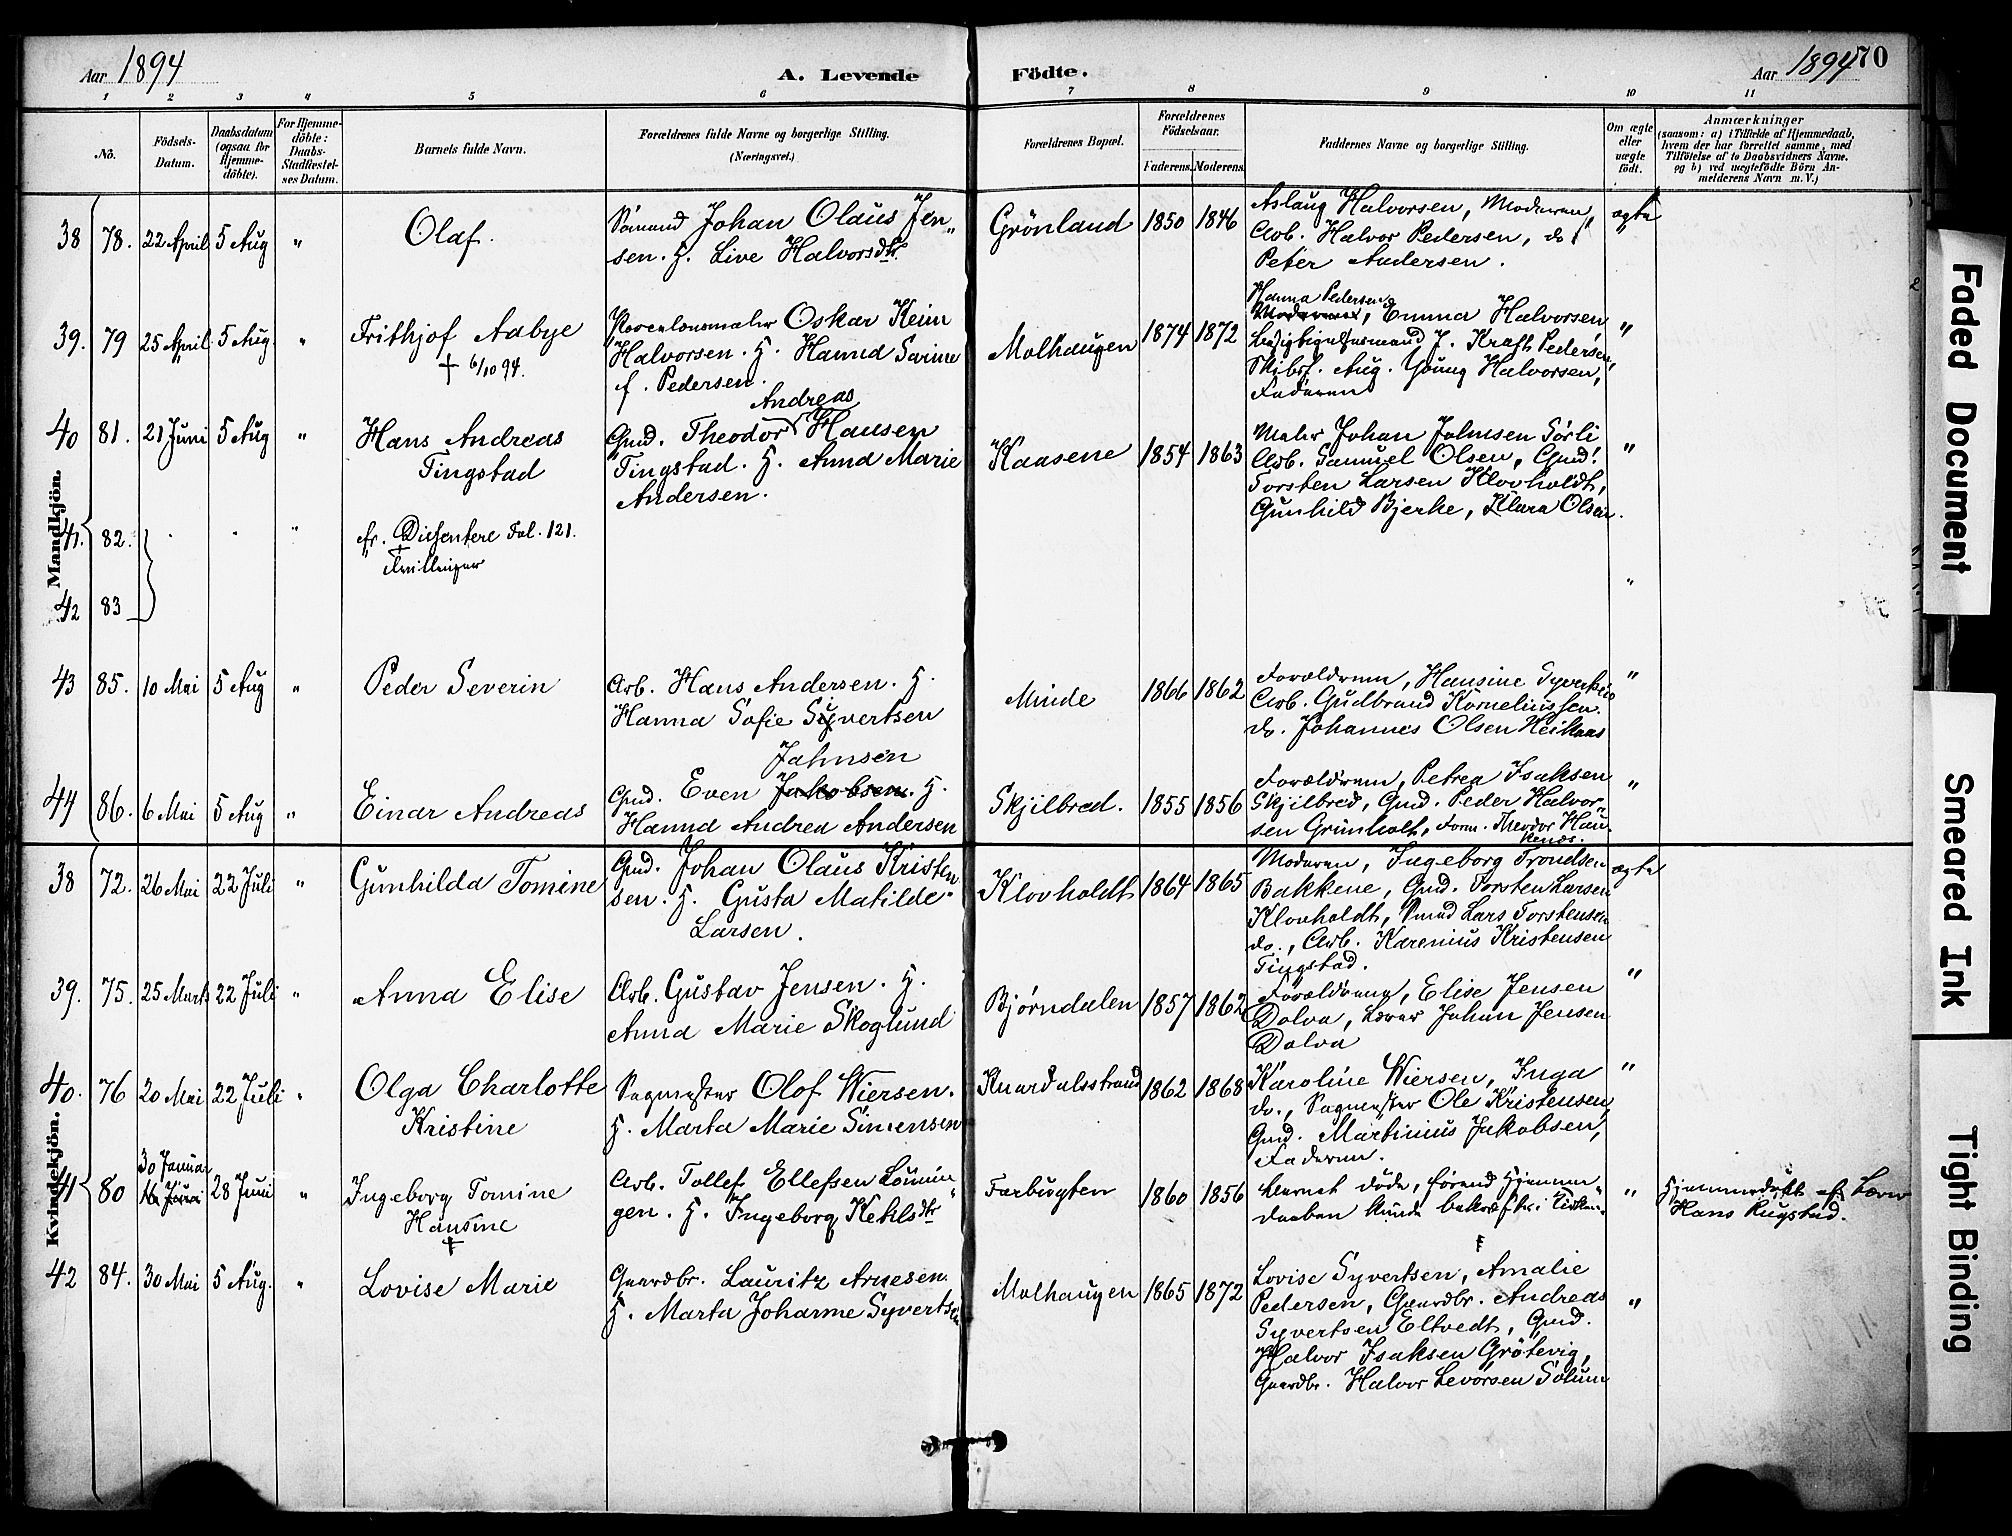 Aar 1894
A. Levende
Födte.
Aar 1894
70
1 2 3 4 5 6 7 8 9 10 11
No.
Födsels-
Datum.
Daabsdatum
(ogsaa for
Hjemme-
döbte).
For Hjemme-
döbte:
Daabs-
Stadfæstel-
ses Datum.
Barnets fulde Navn.
Forældrenes fulde Navne og borgerlige Stilling.
(Næringsvei.)
Forældrenes Bopæl.
Forældrenes
Födselsaar.
Faderens. Moderens.
Faddernes Navne og borgerlige Stilling.
Om ægte
eller
uægte
födt.
Anmærkninger
(saasom: a) i Tilfælde af Hjemmedaab,
hvem der har forrettet samme, med
Tilföielse af to Daabsvidners Navne,
og b) ved uægtefödte Börn An-
melderens Navn m. V.)
Mandkjön.
38 78. 22 April 5 Aug "
Olaf.
Sömand Johan Olaus Jen„
sen. H. Live Halvorsdtr.
Grönland 1850 1846
Aslaug Halvorsen, Moderen,
Arb. Halvor Pedersen, do
Peter Andersen.
ægte
39. 79 25 April 5 Aug. "
Frithjof Aabye
† 6/10 94.
Porcelænsmaler Oskar Keim
Halvorsen. H. Hanna Sarine
f. Pedersen.
Molhaugen 1874 1872
Hanna Pedersen
Moderen, Emma Halvorsen,
J. Kraft Pedersen,
Skibsf. Aug. Young Halvorsen,
Faderen
"
40 81. 21 Juni 5 Aug "
Hans Andreas
Tingstad
Andreas
Gmd. Theodor Hansen
Tingstad. H. Anna Marie
Andersen.
Kaasene 1854 1863
Maler Johan Johnsen Sörli
Arb. Samuel Olsen, Gmd.
Torsten Larsen Klovholdt,
Gunhild Bjerke, Klara Olsen.
"
41. 82. "
fr. Dissentere Fol. 121.
Tvillinger
42 83
"
43 85. 10 Mai 5 Aug "
Peder Severin
Arb. Hans Andersen. H.
Hanna Sofie Syvertsen
Minde 1866 1862
Forældrene, Hansine Syvertsen
Arb. Gudbrand Korneliussen.
do. Johannes Olsen Heikaas
"
44 86. 6 Mai 5 Aug "
Einar Andreas
Johnsen
Gmd. Even Jakobsen. H.
Hanna Andrea Andersen
Skjilbred. 1855 1856
Forældrene, Petrea Isaksen
Skjilbred, Gmd. Peder Halvor„
sen Grinholt, Form. Theodor Hau„
kenæs.
"
Kvindekjön.
38 72. 26 Mai 22 Juli "
Gunhilda Tomine
Gmd. Johan Olaus Kristen
sen. H. Gusta Matilde
Larsen.
Klovholdt 1864 1865
Moderen, Ingeborg Trondsen
Bakkene, Gmd. Torsten Larsen
Klovholdt, Smed Lars Torstensen
do., Arb. Karenius Kristensen
Tingstad.
ægte
39. 75. 25 Marts 22 Juli "
Anna Elise
Arb. Gustav Jensen. H.
Anna Marie Skoglund
Bjørndalen 1857 1862
Forældrene, Elise Jensen
Dolva, Lærer Johan Jensen
Dolva
"
40. 76 20 Mai 22 Juli "
Olga Charlotte
Kristine
Sagmester Olof Wiersen.
H. Marta Marie Simensen
Knardalsstrand 1862 1868
Karoline Wiersen, Inga
do., Sagmester Ole Kristensen,
Gmd. Martinius Jakobsen,
Faderen.
"
41 80
30 Januar
28 Juni "
Ingeborg Tomine
Hansine
†
Arb. Tollef Ellefsen Lönin„
gen. H. Ingeborg Ketilsdtr
Farbugten 1860 1856
Barnet döde, förend Hjemme„
daaben kunde bekræftes i Kirken.
"
Hjemmedöbt af Lærer
Hans Rugstad.
42 84. 30 Mai 5 Aug. "
Lovise Marie
Gaardbr. Lauritz Arnesen.
H. Marta Johanne Syvertsen
Molhaugen 1865 1872
Lovise Syvertsen, Amalie
Pedersen, Gaardbr. Andreas
Syvertsen Eltvedt, Gmd.
Halvor Isaksen Grötevig,
Gaardbr. Halvor Levorsen Solum
"
Faded Document
Smeared Ink
Tight Binding